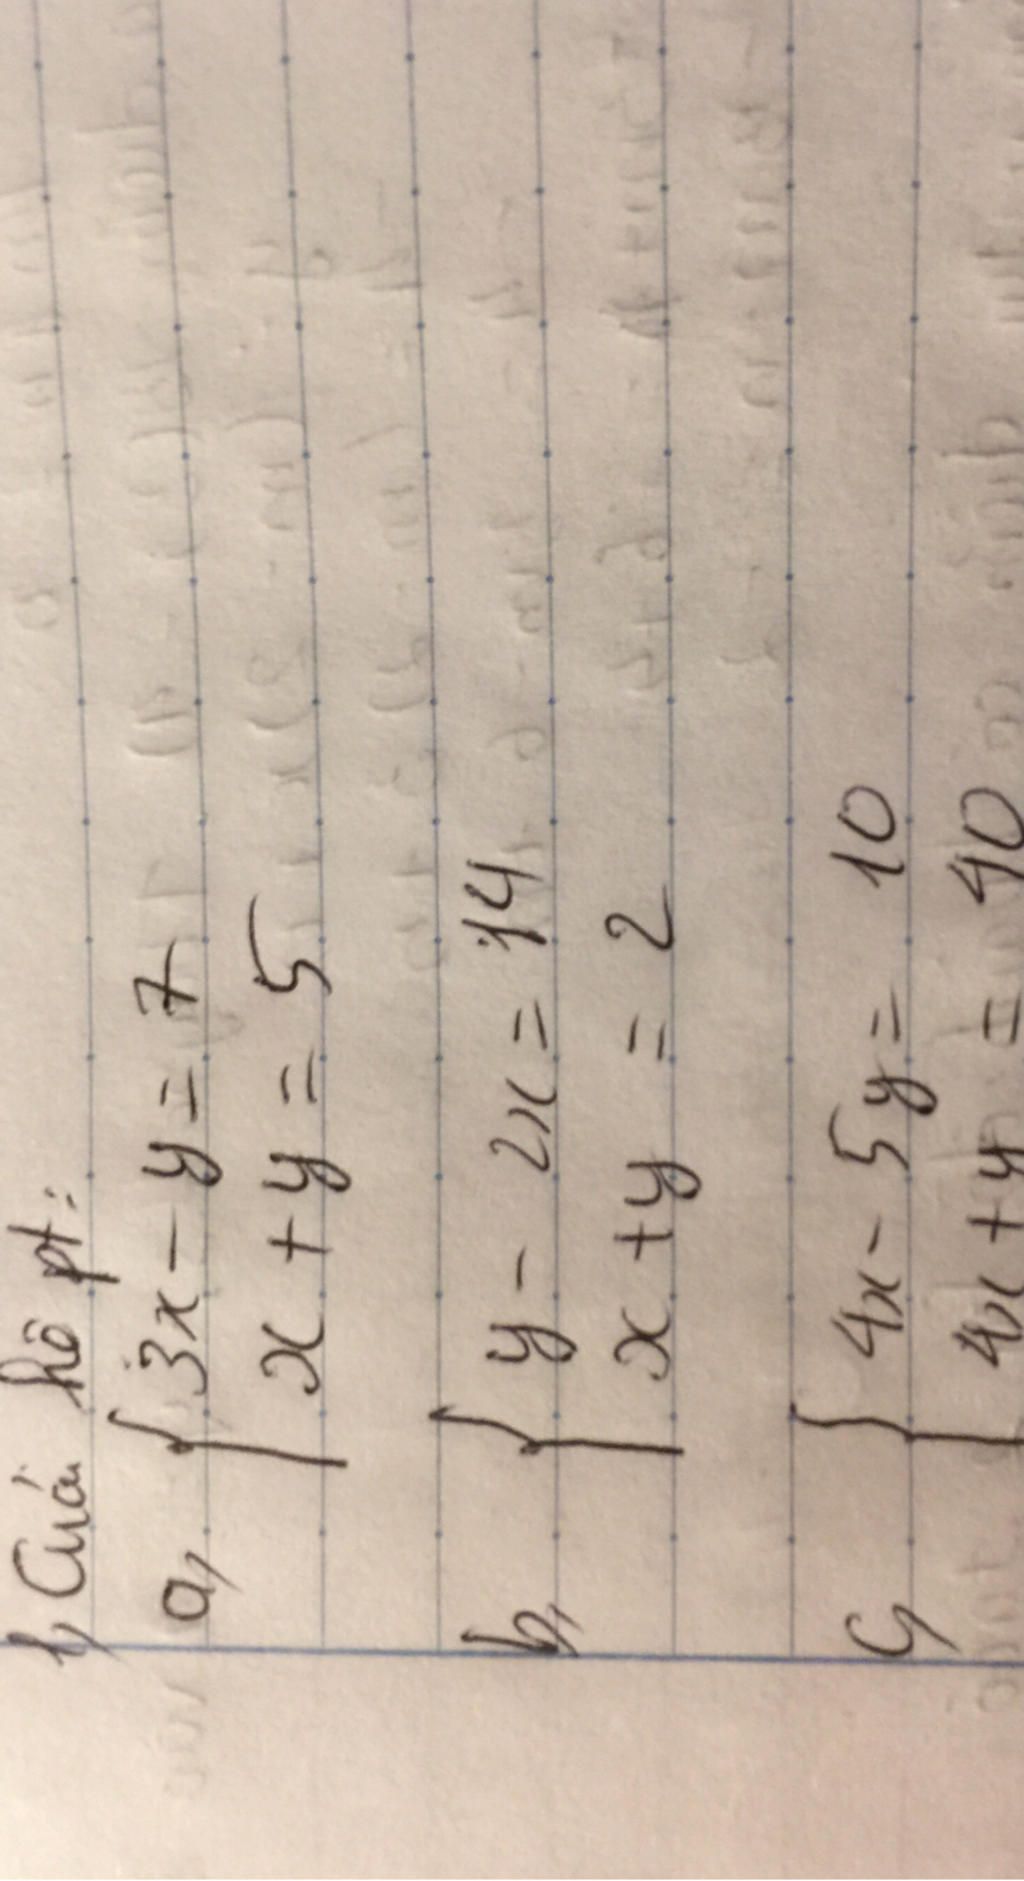 1, Giải hệ pt:
a, { 3x - y = 7
x + y = 5
b, { y - 2x = 14
x + y = 2
c, { 4x - 5y = 10
4x + y = 40